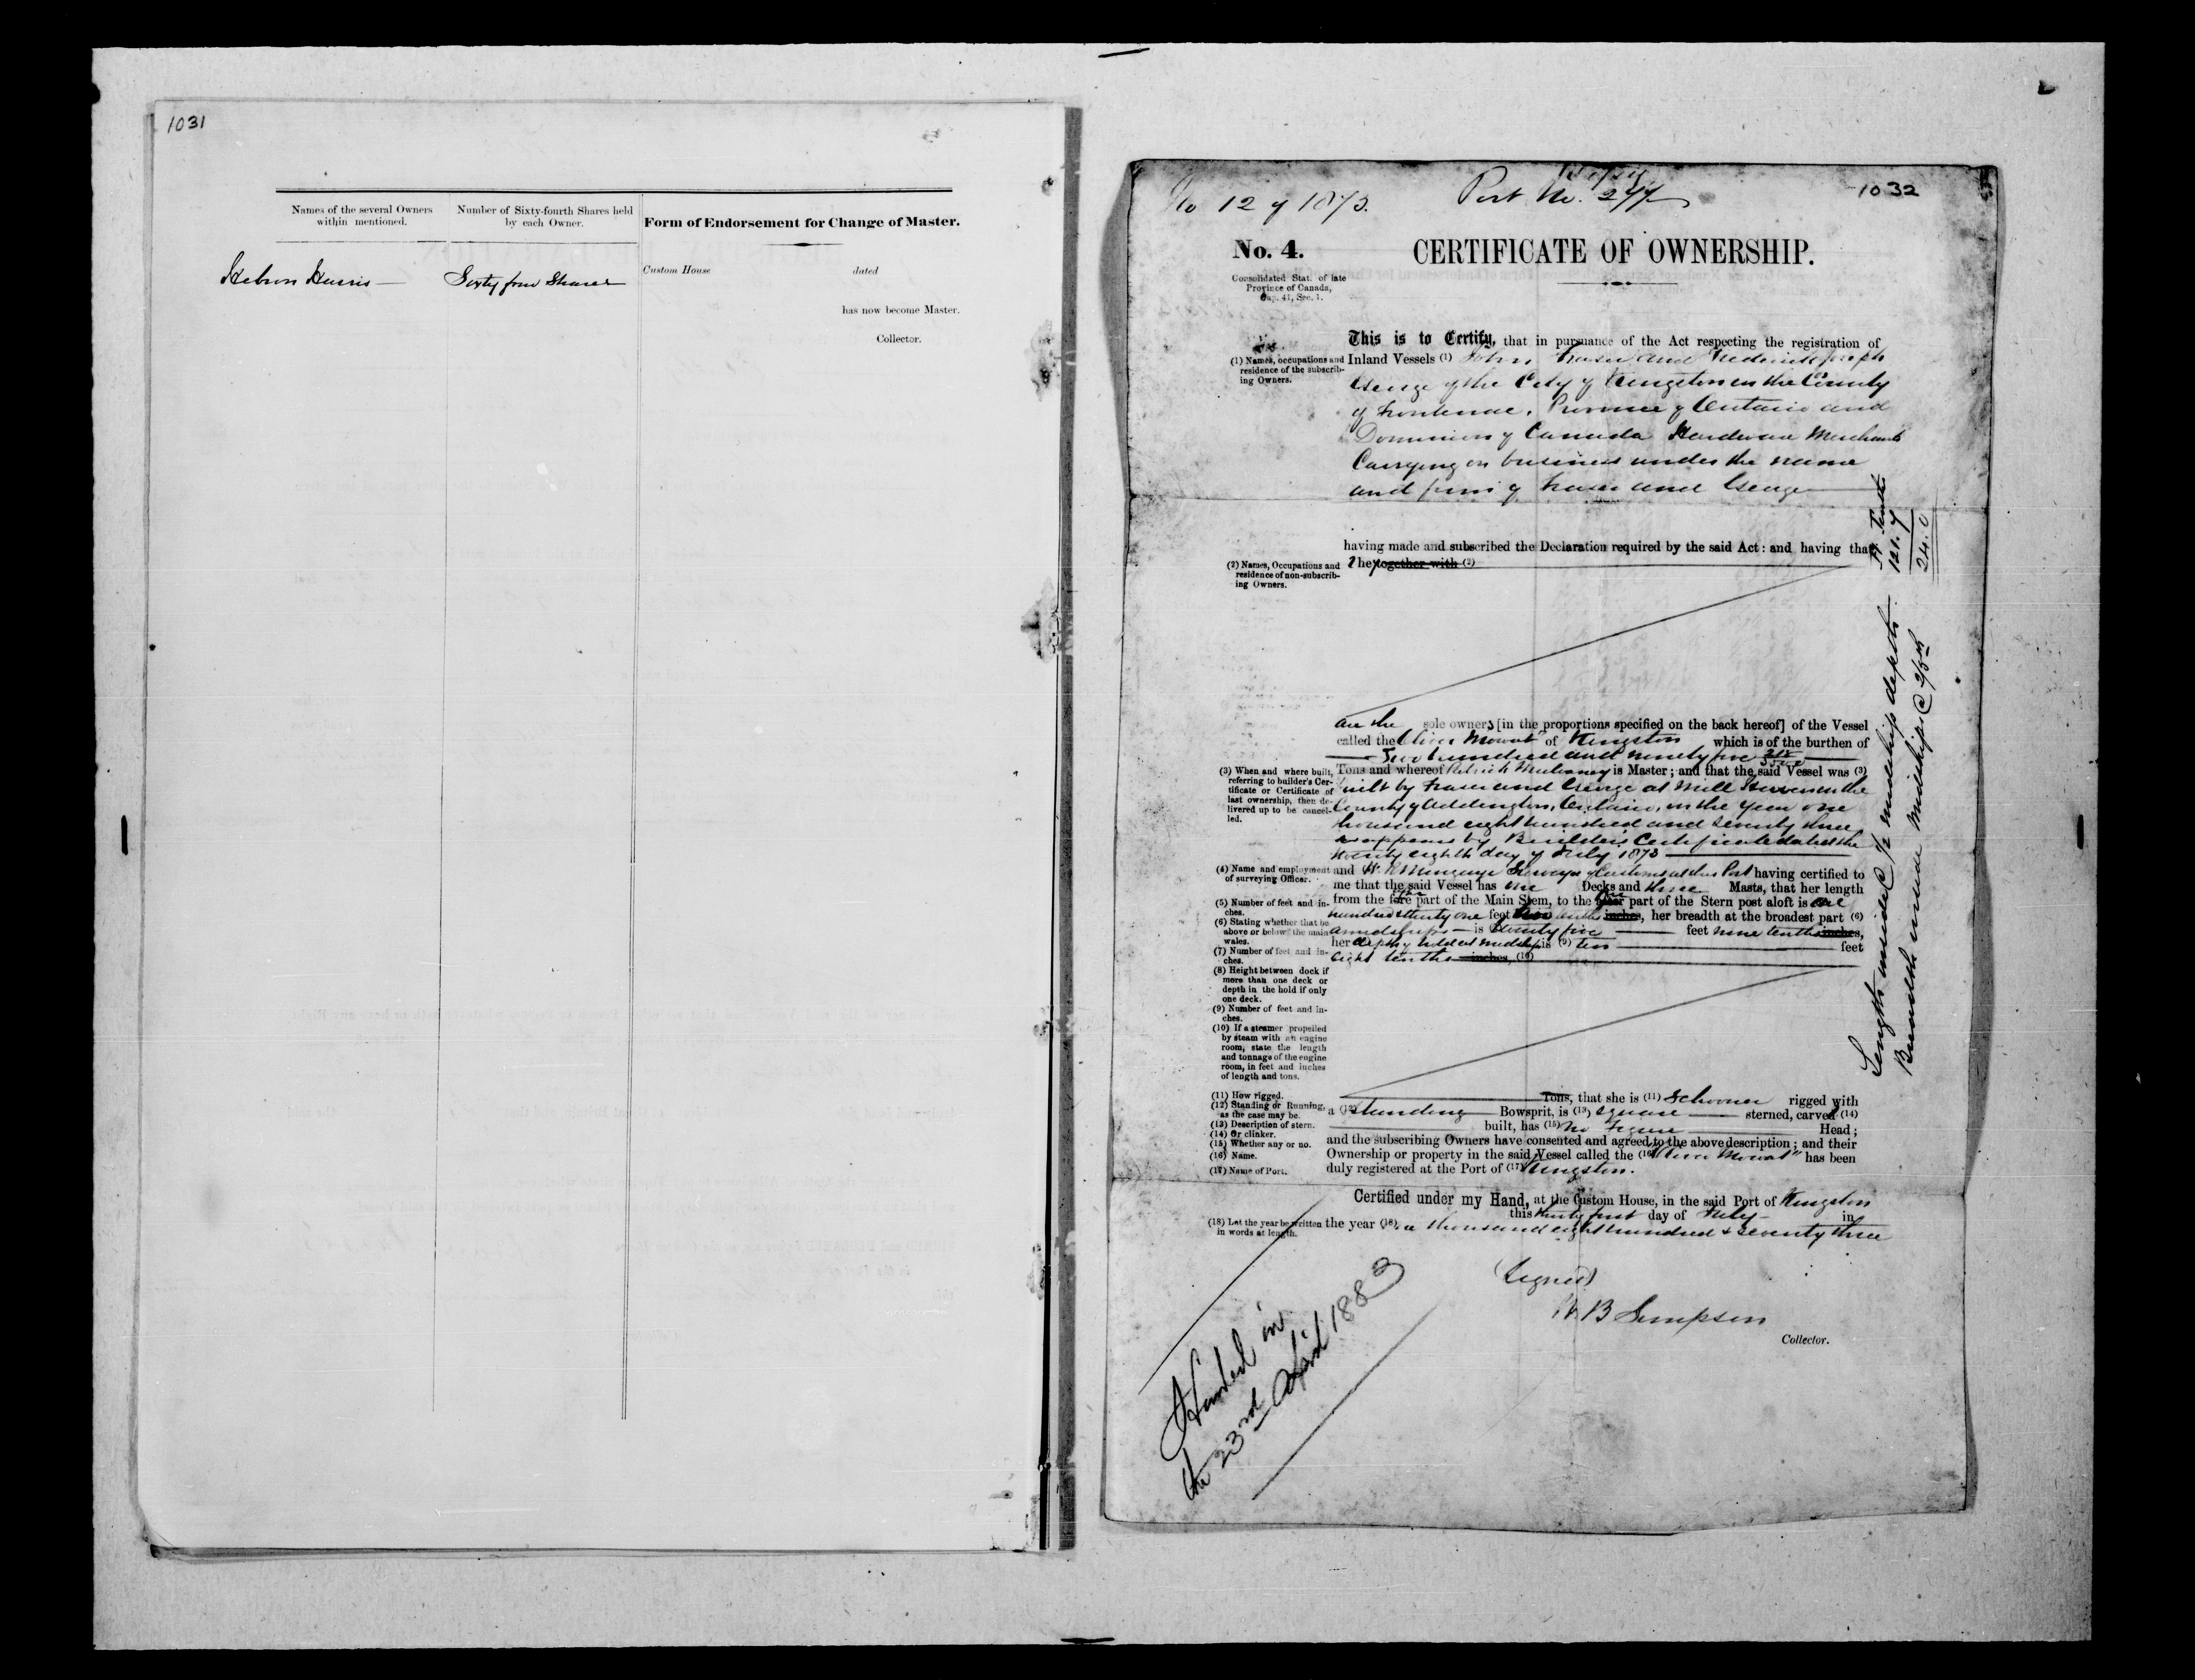 1031
Names of the several Owners
within mentioned.
Number of Sixty-fourth Shares held
by each Owner.
Form of Endorsement for Change of Master.
Custom House dated
has now become Master.
Collector.
Hebron Harris
Sixty four Shares
1032
No 12 of 1873.
Port No.
No. 4.
CERTIFICATE OF OWNERSHIP.
Consolidated Stat. of late
Province of Canada,
Cap. 41, Sec. 1.
This is to Certify, that in pursuance of the Act respecting the registration of
(1) Names, occupations and
residence of the subscrib-
ing Owners.
Inland Vessels (1) John Fraser and Frederick Joseph
George of the City of Kingston in the County
of Frontenac, Province of Ontario and
Dominion of Canada Hardware Merchants
Carrying on business under the name
and firm of Fraser and George
having made and subscribed the Declaration required by the said Act: and having that
(2) Names, Occupations and
residence of non-subscrib-
ing Owners.
they together with (2)
are the sole owners [in the proportions specified on the back hereof] of the Vessel
called the Oliver Mowat of Kingston which is of the burthen of
Two hundred and ninety five
(3) When and where built,
referring to builder's Cer-
tificate or Certificate of
last ownership, then de-
livered up to be cancel-
led.
Tons and whereof Patrick Mulvaney is Master; and that the said Vessel was (3)
built by Fraser and George at Mill Haven in the
County of Addington, Ontario, in the year one
thousand eight hundred and seventy three
as appears by Builder's Certificate dated the
twenty eighth day of July 1873
(4) Name and employment
of surveying Officer.
and Surveyor of Customs at this Port having certified to
me that the said Vessel has one Decks and three Masts, that her length
(5) Number of feet and in-
ches.
from the fore part of the Main Stem, to the part of the Stern post aloft is one
hundred & twenty one feet tenths inches, her breadth at the broadest part (6)
(6) Stating whether that be
above or below the main
wales.
amidships is twenty five feet nine tenths inches,
(7) Number of feet and in-
ches.
her depth of hold at midship is (9) ten feet
eight tenths inches, (10)
(8) Height between deck if
more than one deck or
depth in the hold if only
one deck.
(9) Number of feet and in-
ches.
(10) If a steamer propelled
by steam with an engine
room, state the length
and tonnage of the engine
room, in feet and inches
of length and tons.
(11) How rigged.
(12) Standing or Running,
as the case may be.
(13) Description of stern.
(14) Or clinker.
(15) Whether any or no.
(16) Name.
(17) Name of Port.
Tons, that she is (11) Schooner rigged with
a (12) standing Bowsprit, is (13) square sterned, carvel (14)
built, has (15) no figure Head;
and the subscribing Owners have consented and agreed to the above description; and their
Ownership or property in the said Vessel called the (16) "Oliver Mowat" has been
duly registered at the Port of (17) Kingston.
Certified under my Hand, at the Custom House, in the said Port of Kingston
this thirty first day of July in
(18) Let the year be written
in words at length.
the year (18) one thousand eight hundred & seventy three
(Signed)
W. B Simpson
Collector.
Handed in
the 23rd April 1883
Length inside @ 1/2 midship depth
Ft Tenths
121.7
Breadth inside midships @
24.0